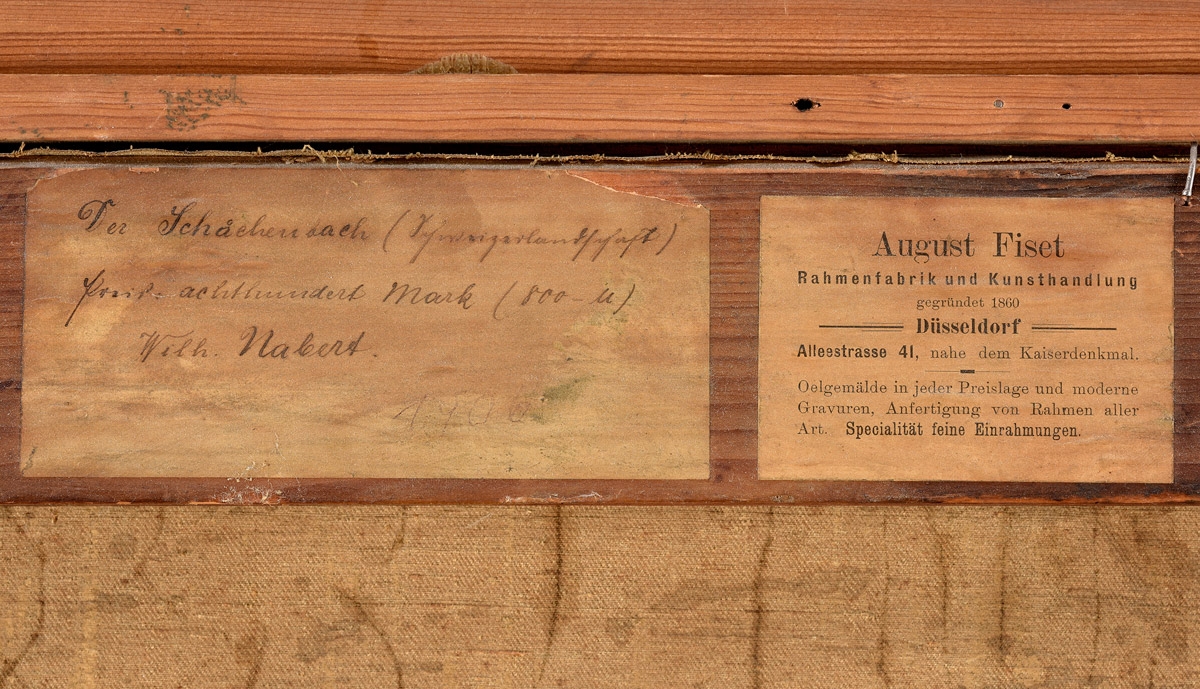 Der Schächenbach (Schweizerlandschaft)
Preis achthundert Mark (800 - M)
Wilh. Nabert.
August Fiset
Rahmenfabrik und Kunsthandlung
gegründet 1860
Düsseldorf
Alleestrasse 41, nahe dem Kaiserdenkmal.
Oelgemälde in jeder Preislage und moderne
Gravuren, Anfertigung von Rahmen aller
Art. Specialität feine Einrahmungen.